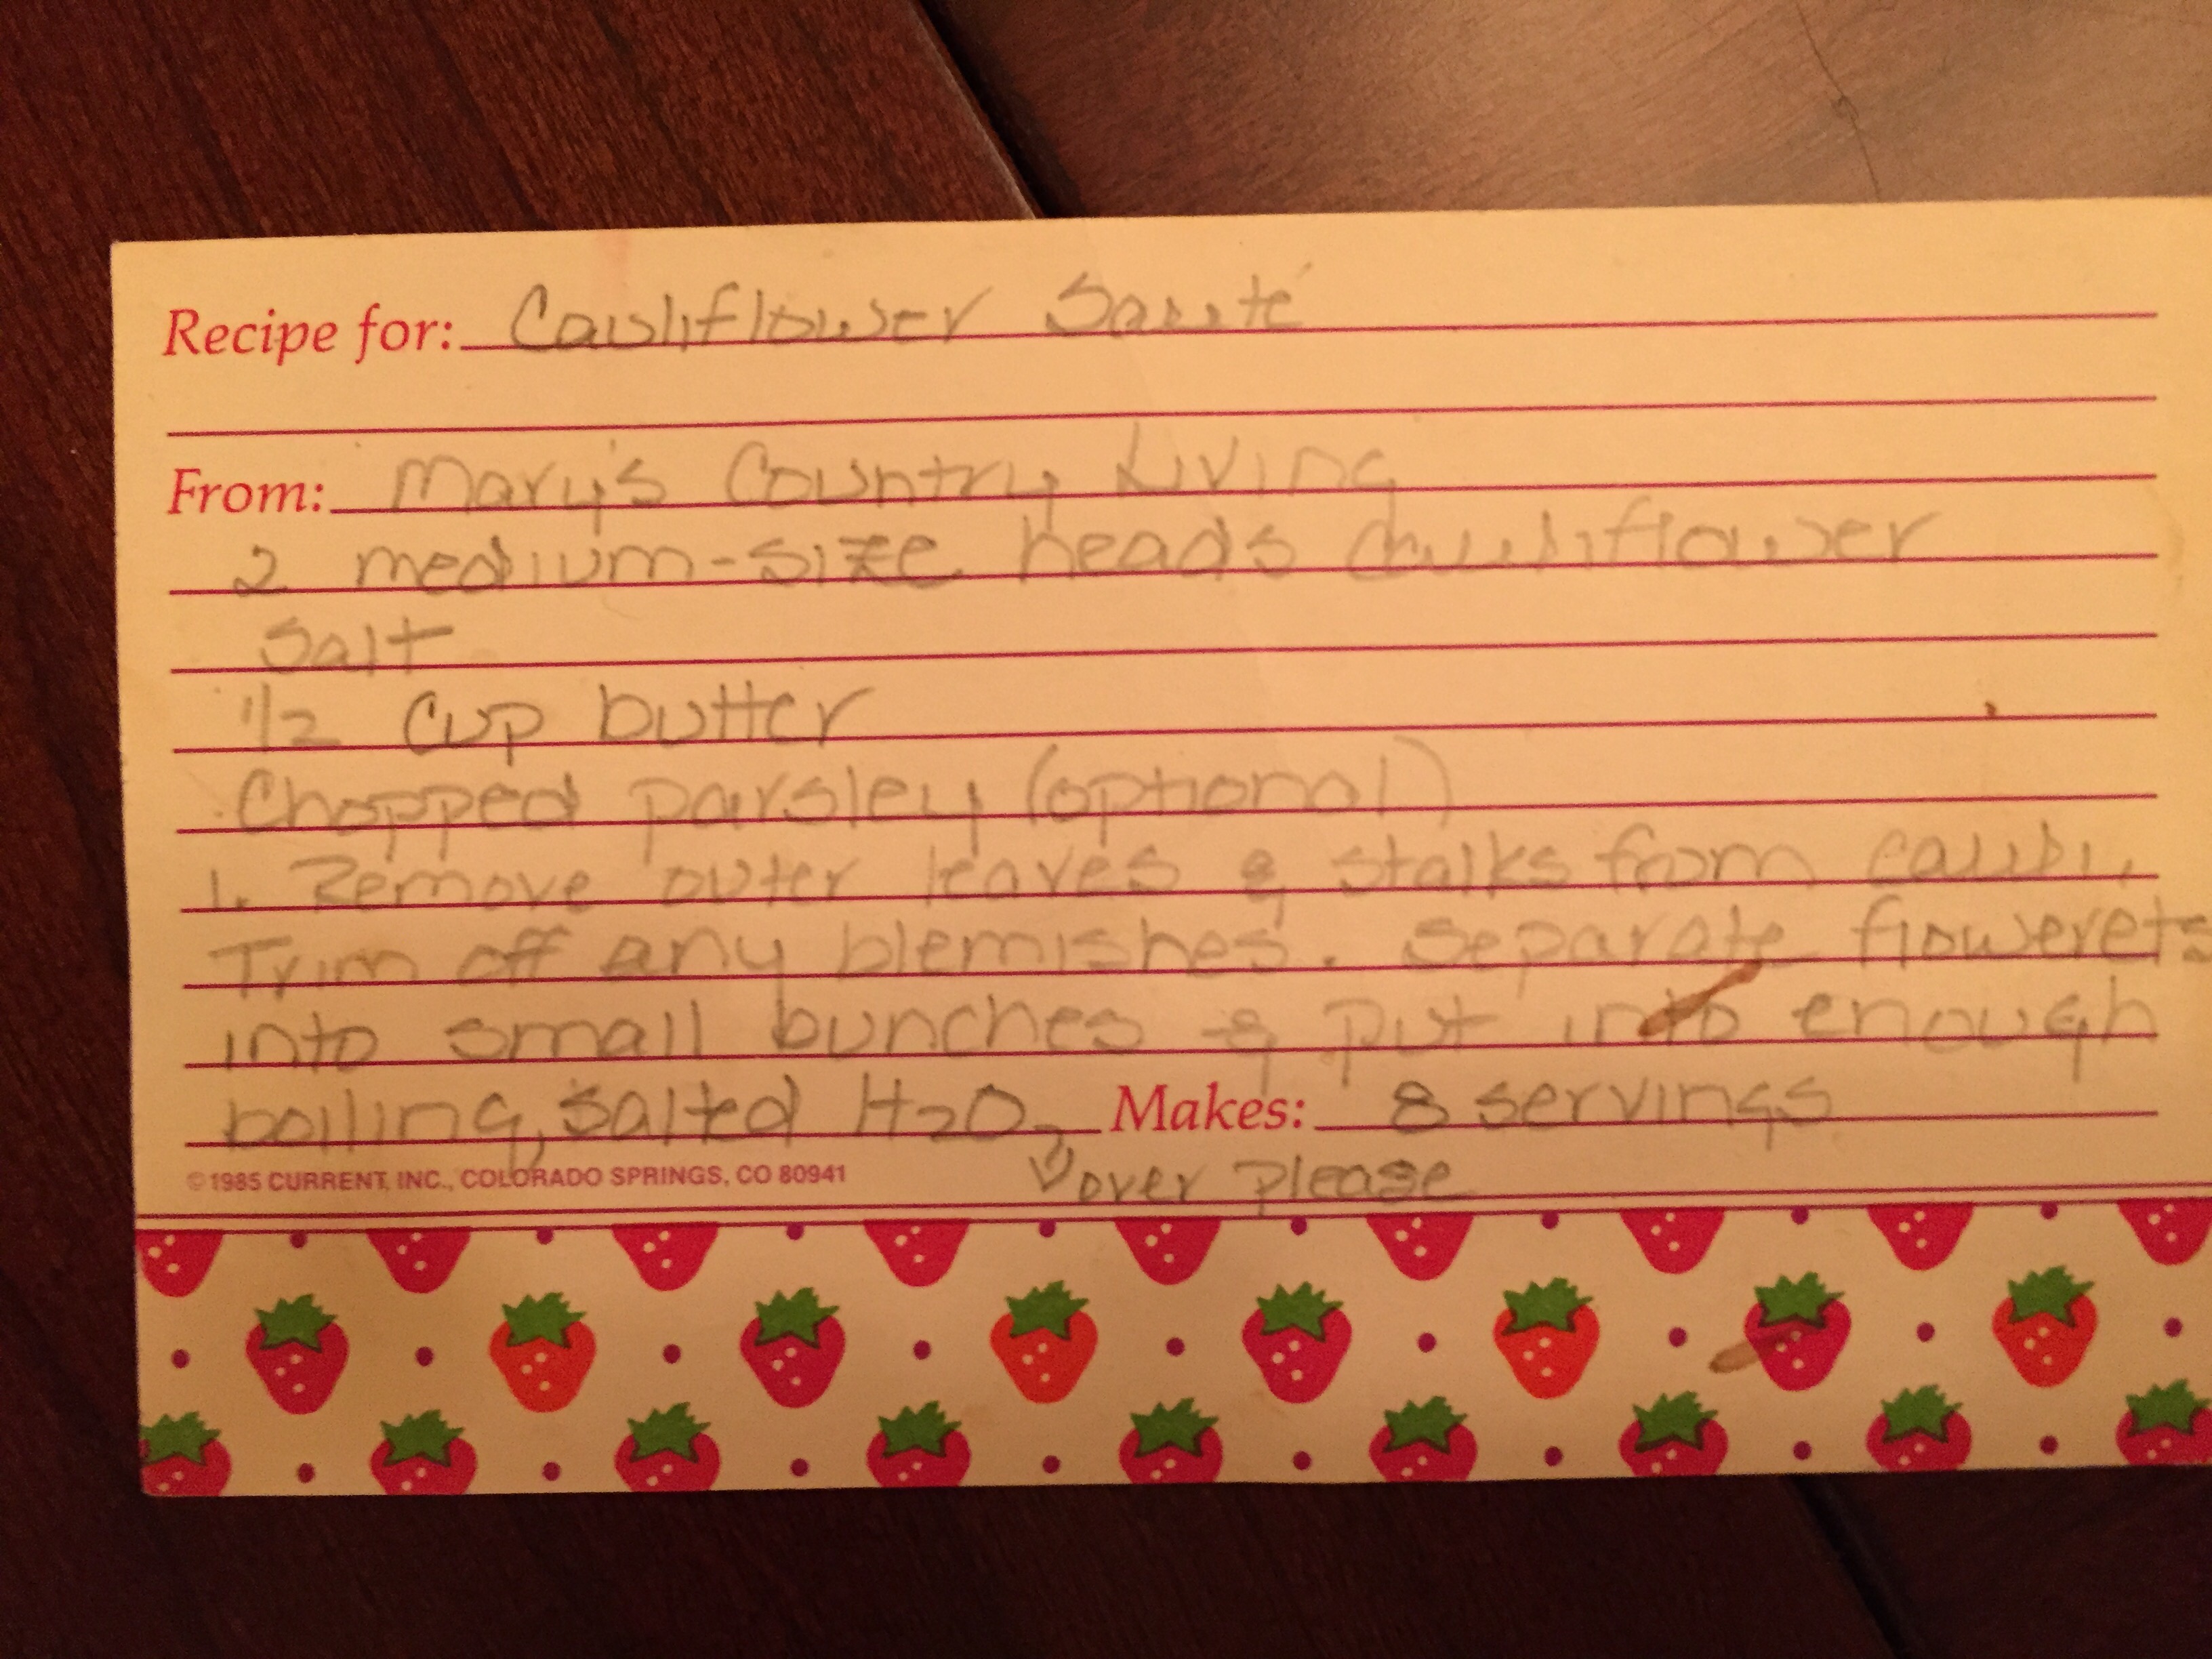 Recipe for: Cauliflower Sauté
From: Mary's Country Living
2 medium-size heads Cauliflower
Salt
1/2 Cup butter
Chopped parsley (optional)
1. Remove outer leaves & stalks from cauli.
Trim off any blemishes. Separate flowerets
into small bunches & put into enough
boiling, salted H2O Makes: 8 servings
©1985 CURRENT, INC., COLORADO SPRINGS, CO 80941 over please